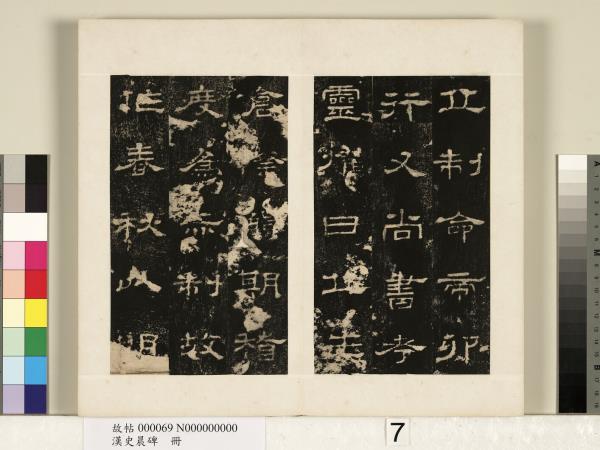 丘制命帝卯
行又尚書考
靈燿曰丘生
倉際觸期稽
度為赤制故
作春秋以明
故帖 000069 N000000000
漢史晨碑 冊
7